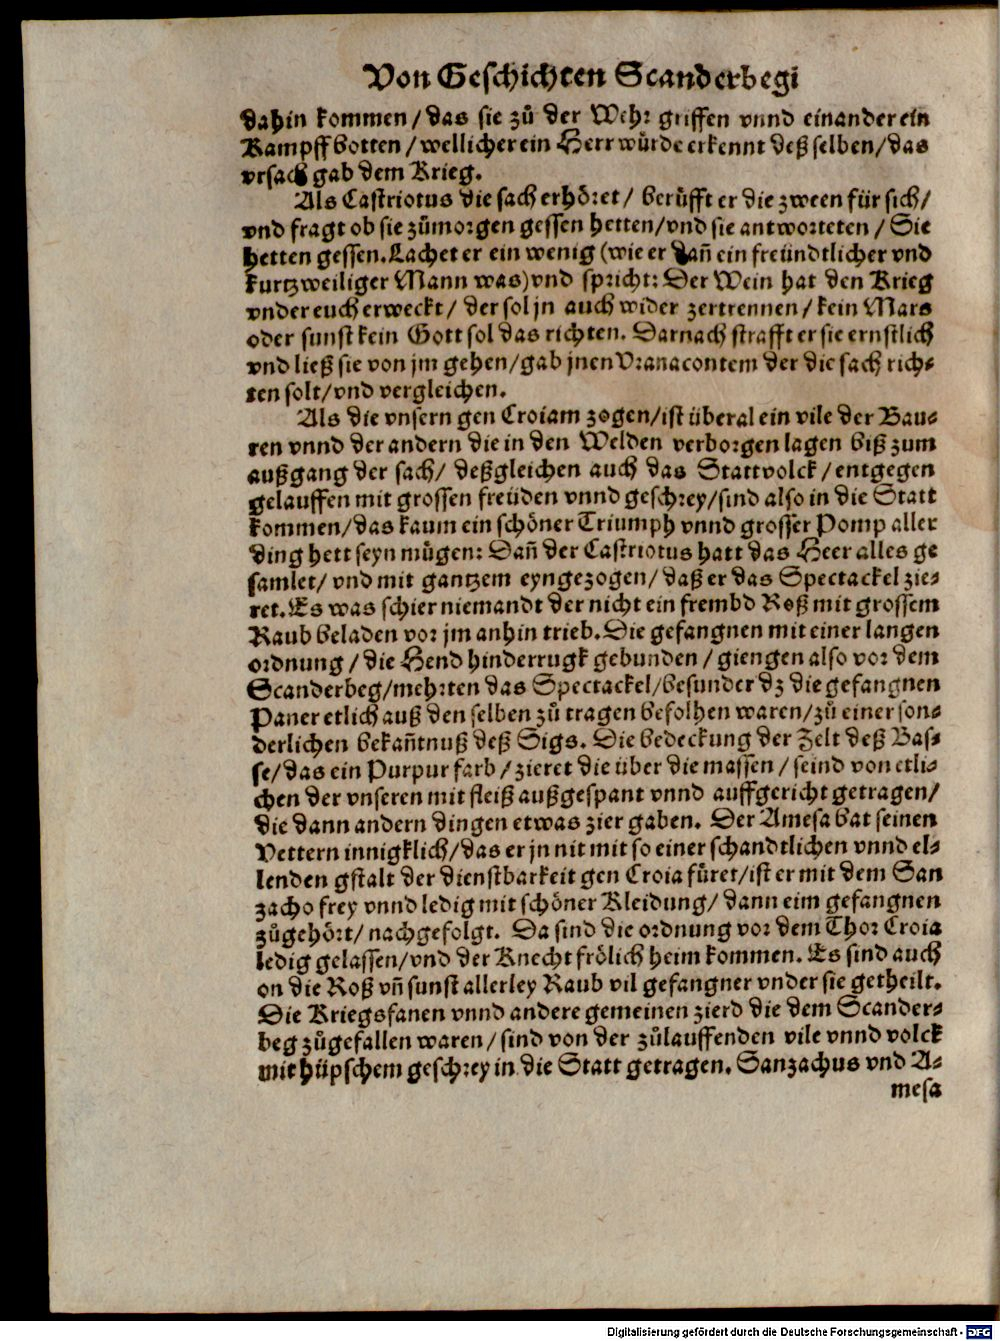 Von Geschichten Scanderbegi
dahin kommen / das sie zů der Wehr griffen vnnd einander ein
Kampff botten / wellicher ein Herr würde erkennt deß selben / das
vrsach gab dem Krieg.
Als Castriotus die sach erhöret / berüfft er die zween für sich /
vnd fragt ob sie zůmorgen gessen hetten / vnd sie antworteten / Sie
hetten gessen. Lachet er ein wenig (wie er dañ ein freündtlicher vnd
kurtzweiliger Mann was) vnd spricht: Der Wein hat den Krieg
vnder euch erweckt / der sol jn auch wider zertrennen / kein Mars
oder sunst kein Gott sol das richten. Darnach strafft er sie ernstlich
vnd ließ sie von jm gehen / gab jnen Vranacontem der die sach rich-
ten solt / vnd vergleichen.
Als die vnsern gen Croiam zogen / ist überal ein vile der Bau-
ren vnnd der andern die in den Welden verborgen lagen biß zum
außgang der sach / deßgleichen auch das Stattvolck / entgegen
gelauffen mit grossen freüden vnnd geschrey / sind also in die Statt
kommen / das kaum ein schöner Triumph vnnd grosser Pomp aller
ding hett seyn mügen: Dañ der Castriotus hatt das Heer alles ge
samlet / vnd mit gantzem eyngezogen / daß er das Spectackel zie-
ret. Es was schier niemandt der nicht ein frembd Roß mit grossem
Raub beladen vor jm anhin trieb. Die gefangnen mit einer langen
ordnung / die Hend hinderrugk gebunden / giengen also vor dem
Scanderbeg / mehrten das Spectackel / besunder dz die gefangnen
Paner etlich auß den selben zů tragen befolhen waren / zů einer son-
derlichen bekañtnuß deß Sigs. Die bedeckung der Zelt deß Bas-
se / das ein Purpur farb / zieret die über die massen / seind von etli-
chen der vnseren mit fleiß außgespant vnnd auffgericht getragen /
die dann andern dingen etwas zier gaben. Der Amesa bat seinen
Vettern innigklich / das er jn nit mit so einer schandtlichen vnnd el-
lenden gstalt der dienstbarkeit gen Croia füret / ist er mit dem San
zacho frey vnnd ledig mit schöner Kleidung / dann eim gefangnen
zůgehört / nachgefolgt. Da sind die ordnung vor dem Thor Croia
ledig gelassen / vnd der Knecht frölich heim kommen. Es sind auch
on die Roß vñ sunst allerley Raub vil gefangner vnder sie getheilt.
Die Kriegsfanen vnnd andere gemeinen zierd die dem Scander-
beg zůgefallen waren / sind von der zůlauffenden vile vnnd volck
mit hüpschem geschrey in die Statt getragen. Sanzachus vnd A-
mesa
Digitalisierung gefördert durch die Deutsche Forschungsgemeinschaft - DFG